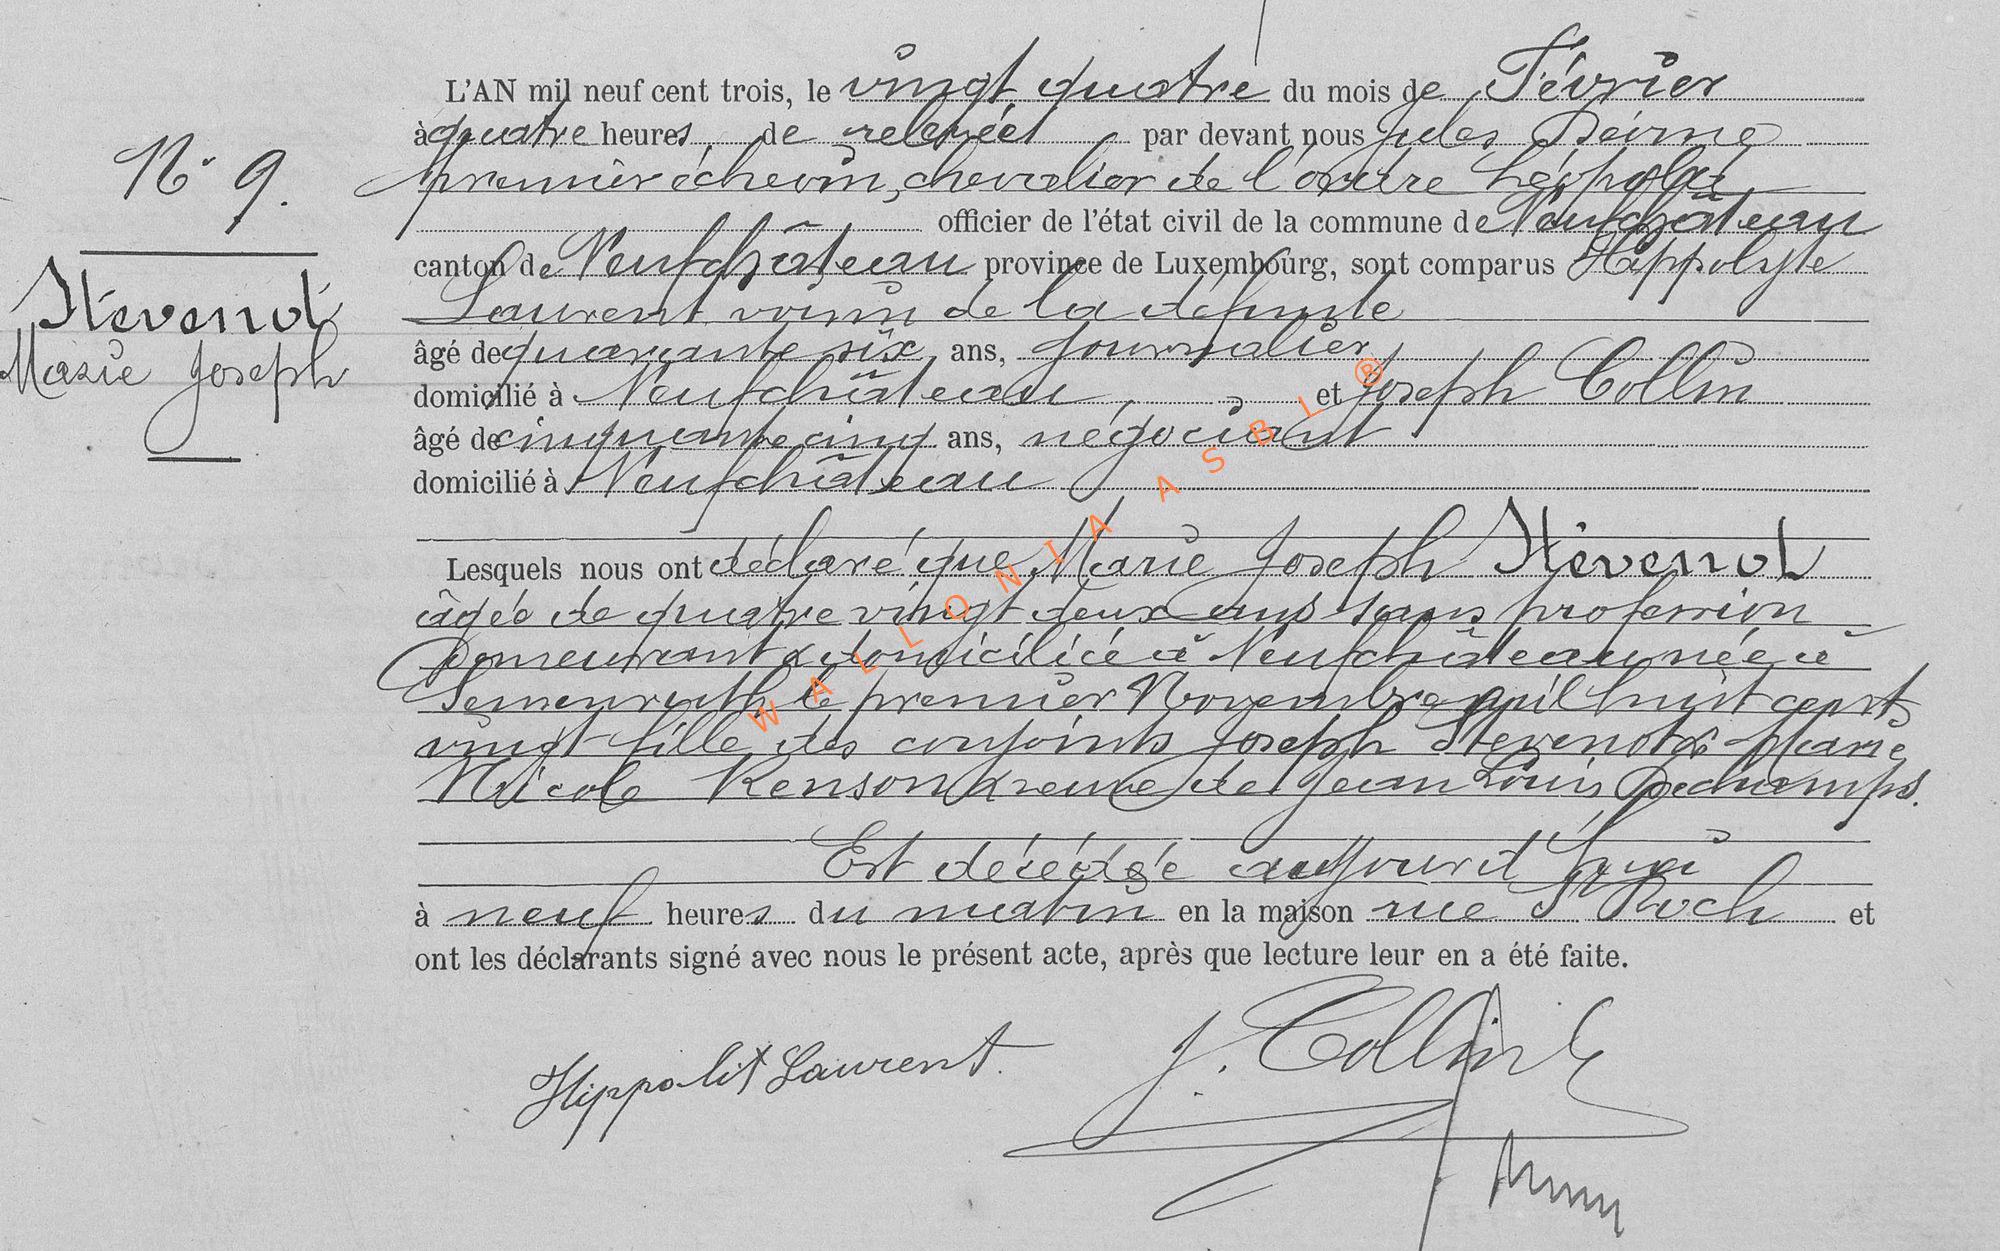 L'AN mil neuf cent trois, le vingt quatre du mois de Février
à quatre heures de relevée par devant nous Jules
premier échevin, chevalier de l'ordre Léopold,
officier de l'état civil de la commune de Neufchâteau
canton de Neufchâteau province de Luxembourg, sont comparus Hippolyte
Laurent voisin de la défunte
âgé de quarante six ans, journalier
domicilié à Neufchâteau, et Joseph Collin
âgé de cinquante cinq ans, négociant
domicilié à Neufchâteau
Lesquels nous ont déclaré que Marie Joseph Stévenot
âgée de quatre vingt deux ans sans profession
Demeurant & domiciliée à Neufchâteau née à
le premier Novembre mil huit cent
vingt fille des conjoints Joseph Stevenot & Marie
Nicole Renson & veuve de Jean Louis Dechamps.
Est décédée aujourd'hui
à neuf heures du matin en la maison rue St Roch et
ont les déclarants signé avec nous le présent acte, après que lecture leur en a été faite.
N° 9.
Stévenot
Marie Joseph
Hippolit Laurent.
J. Collin
WALLONIA ASBL ®